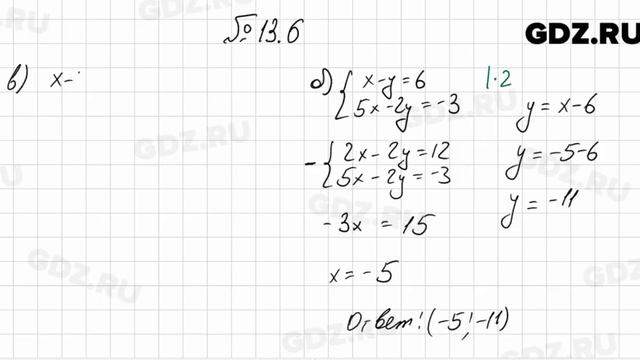 № 13.6
GDZ.RU
в) x-
б) { x-y=6 |·2
5x-2y=-3
- { 2x-2y=12
5x-2y=-3
-3x = 15
x=-5
y=x-6
y=-5-6
y=-11
Ответ: (-5;-11)